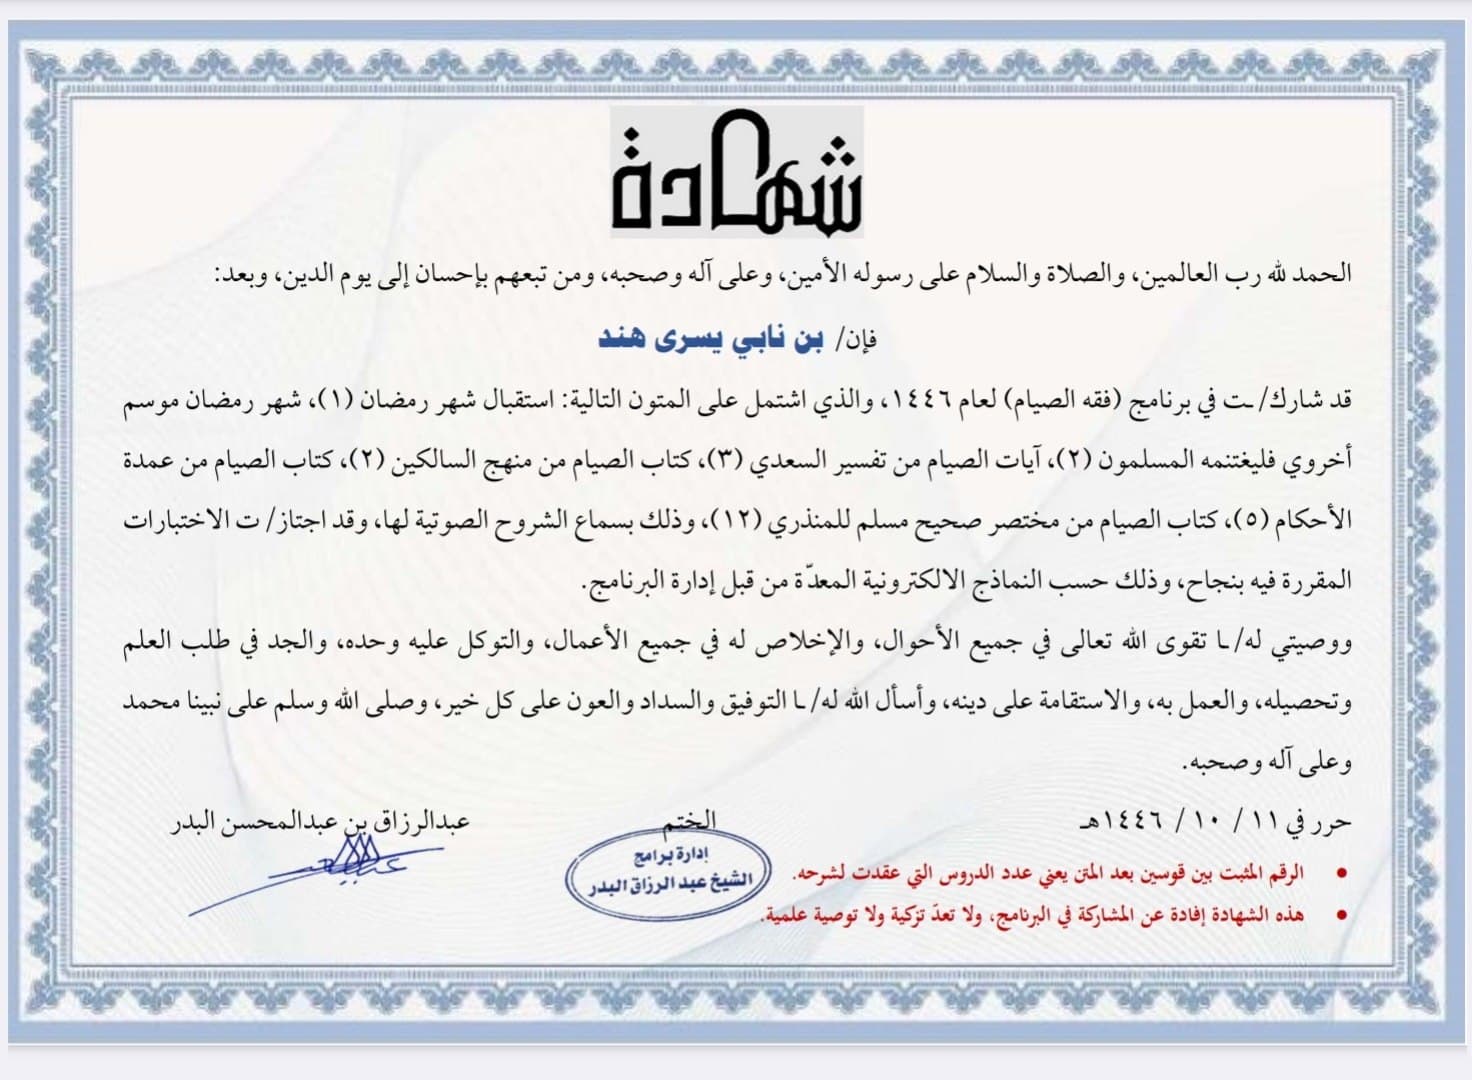 شهادة
الحمد لله رب العالمين، والصلاة والسلام على رسوله الأمين، وعلى آله وصحبه، ومن تبعهم بإحسان إلى يوم الدين، وبعد:
فإن/ بن نابي يسرى هند
قد شارك/ ـت في برنامج (فقه الصيام) لعام ١٤٤٦، والذي اشتمل على المتون التالية: استقبال شهر رمضان (١)، شهر رمضان موسم
أخروي فليغتنمه المسلمون (٢)، آيات الصيام من تفسير السعدي (٣)، كتاب الصيام من منهج السالكين (٢)، كتاب الصيام من عمدة
الأحكام (٥)، كتاب الصيام من مختصر صحيح مسلم للمنذري (١٢)، وذلك بسماع الشروح الصوتية لها، وقد اجتاز/ ت الاختبارات
المقررة فيه بنجاح، وذلك حسب النماذج الالكترونية المعدّة من قبل إدارة البرنامج.
ووصيتي له/ ـا تقوى الله تعالى في جميع الأحوال، والإخلاص له في جميع الأعمال، والتوكل عليه وحده، والجد في طلب العلم
وتحصيله، والعمل به، والاستقامة على دينه، وأسأل الله له/ ـا التوفيق والسداد والعون على كل خير، وصلى الله وسلم على نبينا محمد
وعلى آله وصحبه.
حرر في ١١ / ١٠ / ١٤٤٦هـ
الختم
عبدالرزاق بن عبدالمحسن البدر
إدارة برامج
الشيخ عبد الرزاق البدر
• الرقم المثبت بين قوسين بعد المتن يعني عدد الدروس التي عقدت لشرحه.
• هذه الشهادة إفادة عن المشاركة في البرنامج، ولا تعدّ تزكية ولا توصية علمية.